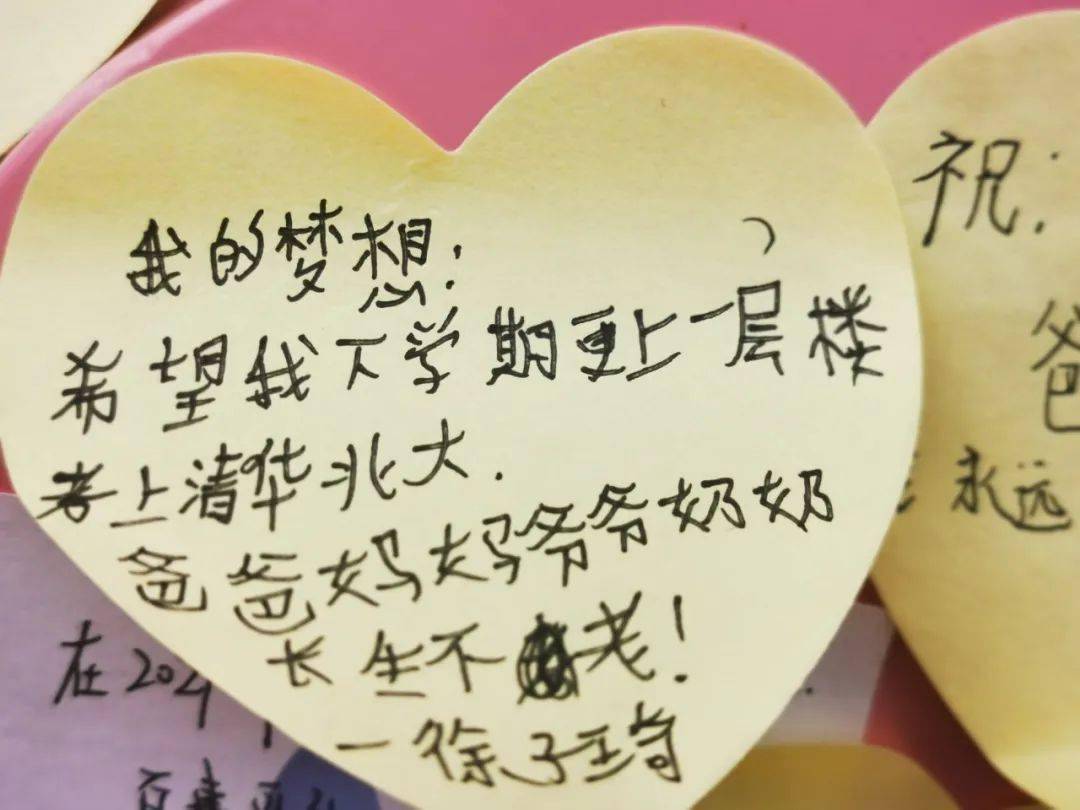 我的梦想:
希望我下学期更上一层楼
考上清华北大.
爸爸妈妈爷爷奶奶
长生不老!
一徐子琦
祝:
爸
永远
在2021